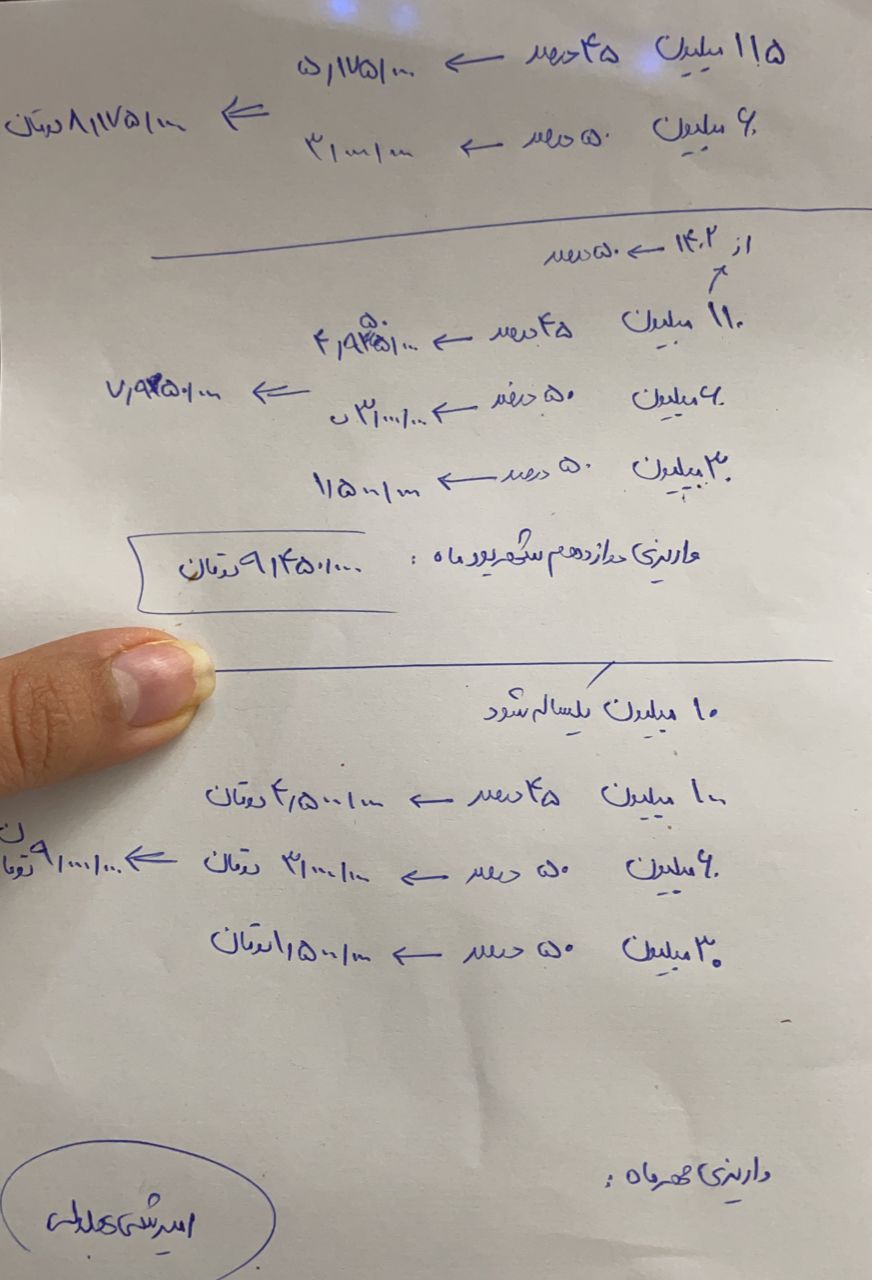 ۱۱۵ میلیون ۴۵ درصد ← ۵,۱۷۵/۰۰۰
۶۰ میلیون ۵۰ درصد ← ۳/۰۰۰/۰۰۰
⇐ ۸,۱۷۵/۰۰۰ تومان
از ۱۴۰۲ ← ۵۰ درصد
۱۱۰ میلیون ۴۵ درصد ← ۴,۹۵۰/۰۰۰
۶۰ میلیون ۵۰ درصد ← ۳/۰۰۰/۰۰۰
⇐ ۷,۹۵۰/۰۰۰
۳۰ میلیون ۵۰ درصد ← ۱/۵۰۰/۰۰۰
واریزی دوازدهم شهریور ماه : ۹,۴۵۰/۰۰۰ تومان
۱۰ میلیون یکساله شود
۱۰۰ میلیون ۴۵ درصد ← ۴,۵۰۰/۰۰۰ تومان
۶۰ میلیون ۵۰ درصد ← ۳/۰۰۰/۰۰۰ تومان
⇐ ۹/۰۰۰/۰۰۰ تومان
۳۰ میلیون ۵۰ درصد ← ۱,۵۰۰/۰۰۰ تومان
واریزی مهرماه :